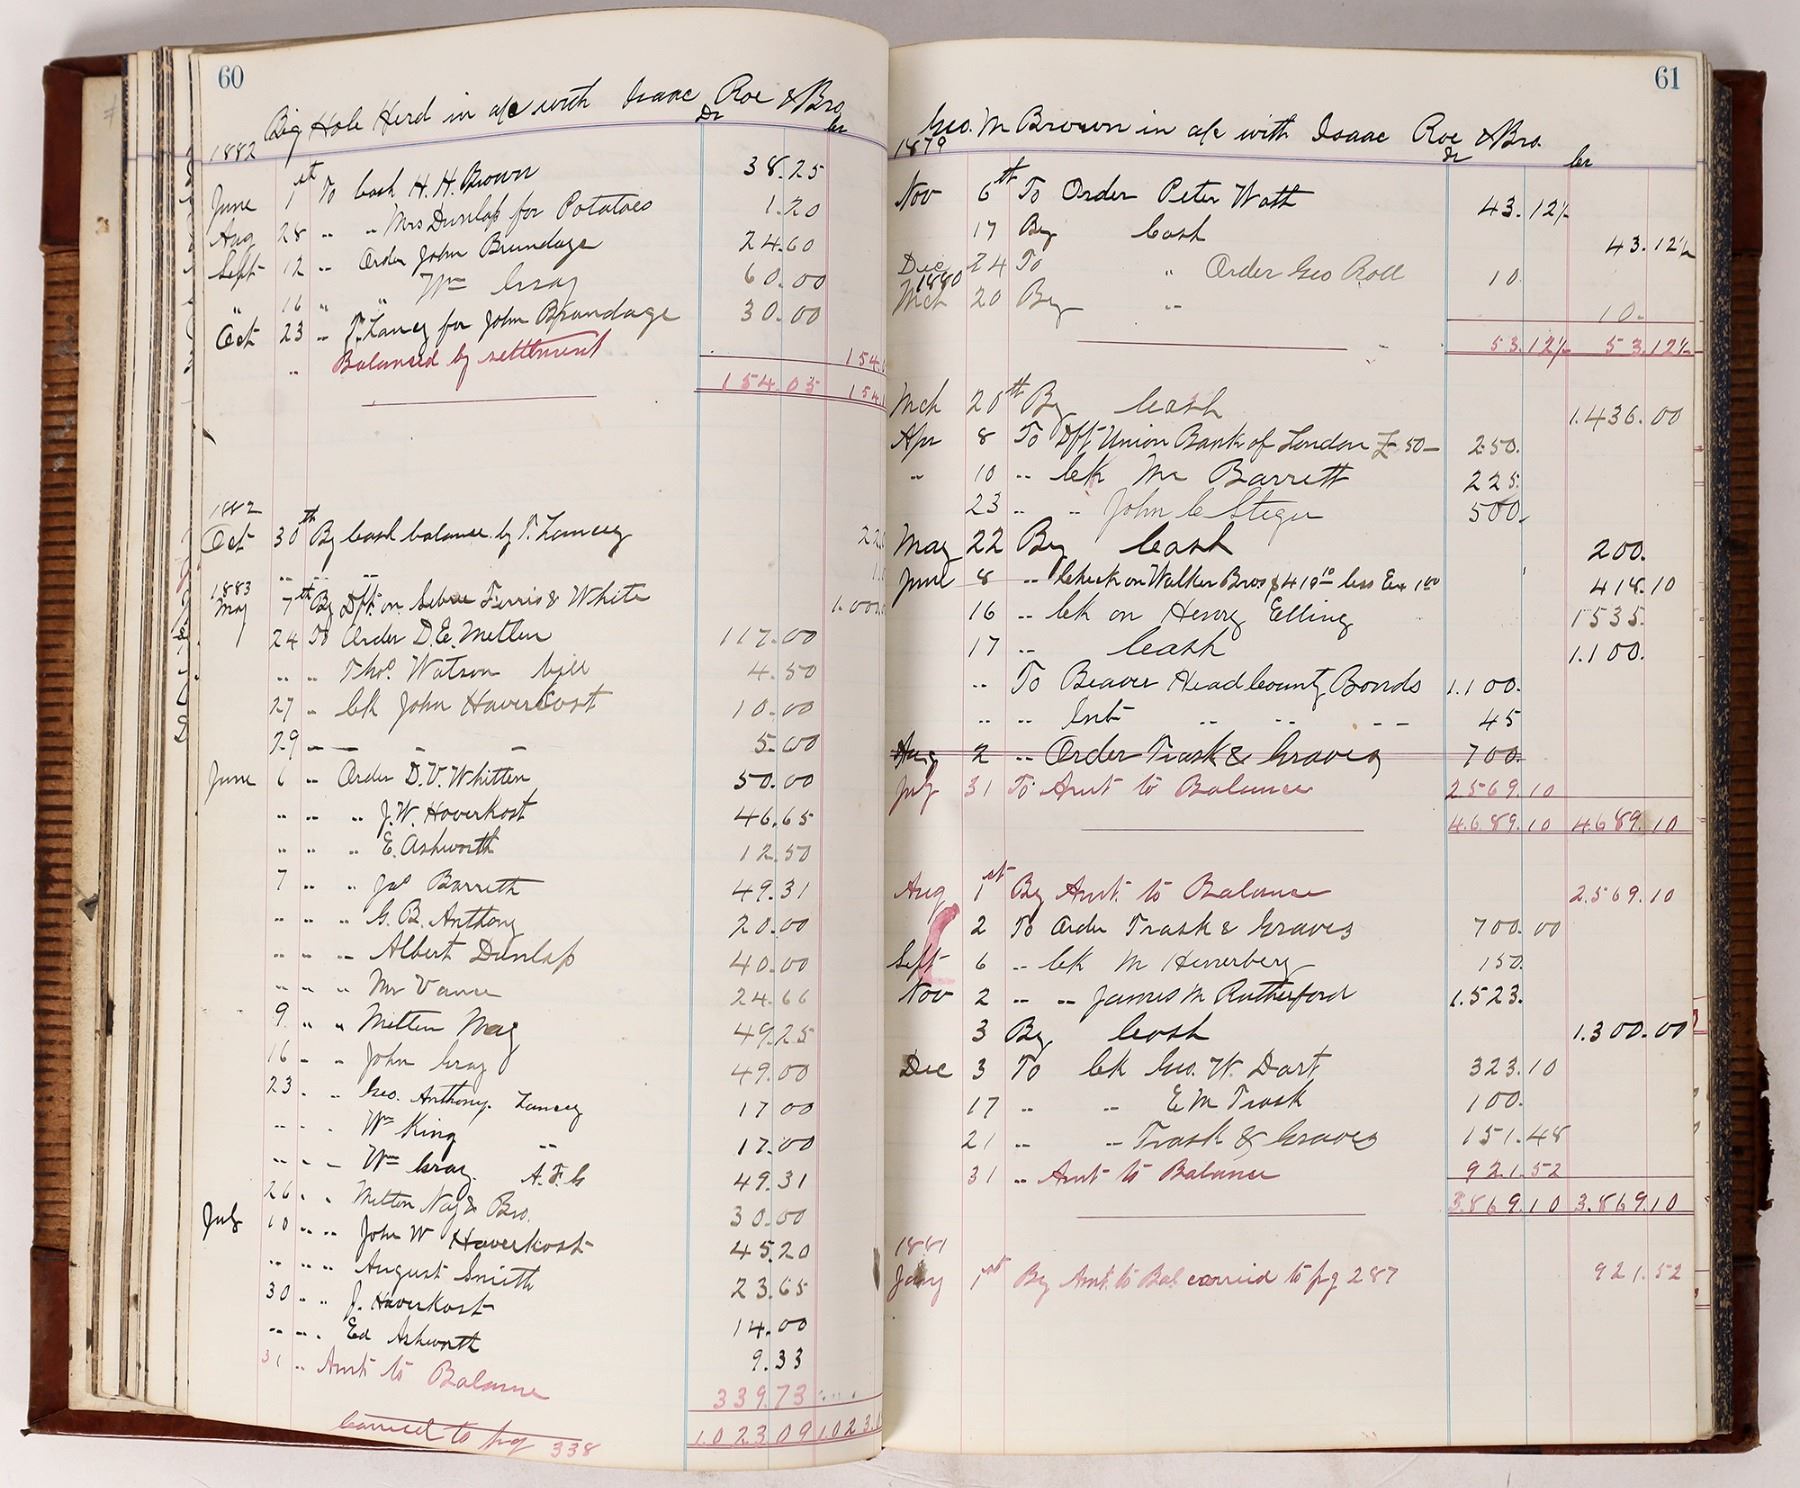 60
Big Hole Herd in a/c with Isaac Roe & Bro.
1882 Dr Cr
June 1st To Cash H. H. Brown 38.25
Aug 28 " " Mrs Dunlap for Potatoes 1.20
Sept 12 " Order John Brundage 24.60
" 16 " " Wm Gray 60.00
Oct 23 " T. Lancey for John Brundage 30.00
" Balanced by settlment 154.
154.05 154.
1882
Oct 30th By Cash balance by T. Lancey 22
" " "
1883
May 7th By Dft. on Ferris & White 1.00
24 To Order D. E. Metlen 117.00
" " Thos. Watson bill 4.50
27 " Ck John Haverkost 10.00
29 " — " " 5.00
June 6 " Order D. V. Whitten 50.00
" " " J. W. Haverkost 46.65
" " " E. Ashworth 12.50
7 " " Jas Barrett 49.31
" " " G. B. Anthony 20.00
" " " Albert Dunlap 40.00
" " " Mr Vance 24.66
9 " " Metlen 49.25
16 " " John Gray 49.00
23 " " Geo. Anthony. Lancey 17 00
" " " Wm King " 17.00
" " " Wm Gray. 49.31
26 " " Metlen & Bro. 30.00
July 10 " " John W Haverkost 45.20
" " " August Smith 23.65
30 " " J. Haverkost 14.00
" " " Ed Ashworth 9.33
31 " Amt to Balance 339.73
1.023 09 1.023.
Carried to pg 338
61
Geo. M Brown in a/c with Isaac Roe & Bro.
1879 Dr Cr
Nov 6th To Order Peter Wath 43.12½
17 By Cash 43.12½
Dec 24 To " Order Geo Roll 10
1880
Mch 20 By " 10.
53.12½ 53.12½
Mch 20th By Cash 1.436.00
Apr 8 To Dft Union Bank of London £50— 250.
" 10 " Ck Mr Barrett 225.
23 " " John C Steger 500.
May 22 By Cash 200.
June 8 " Check on Walker Bros $419 10 less Ex 1 00 418.10
16 " Ck on Henry Elling 1535.
17 " Cash 1.100.
" To Beaver Head County Bonds 1.100.
" " Int " " " 45
Aug 2 " Order Trask & Graves 700.
July 31 To Amt to Balance 2569.10
4.689.10 4689.10
Aug 1st By Amt. to Balance 2.569.10
2 To Order Trask & Graves 700.00
Sept 6 " Ck M Henerberg 150.
Nov 2 " " James M Rutherford 1.523.
3 By Cash 1.300.00
Dec 3 To Ck Geo. W. Dart 323.10
17 " " E M Trask 100.
21 " " Trask & Graves 151.48
31 " Amt to Balance 921.52
3.869.10 3.869.10
1881
Jany 1st By Amt. to Bal carried to pg 287 921.52